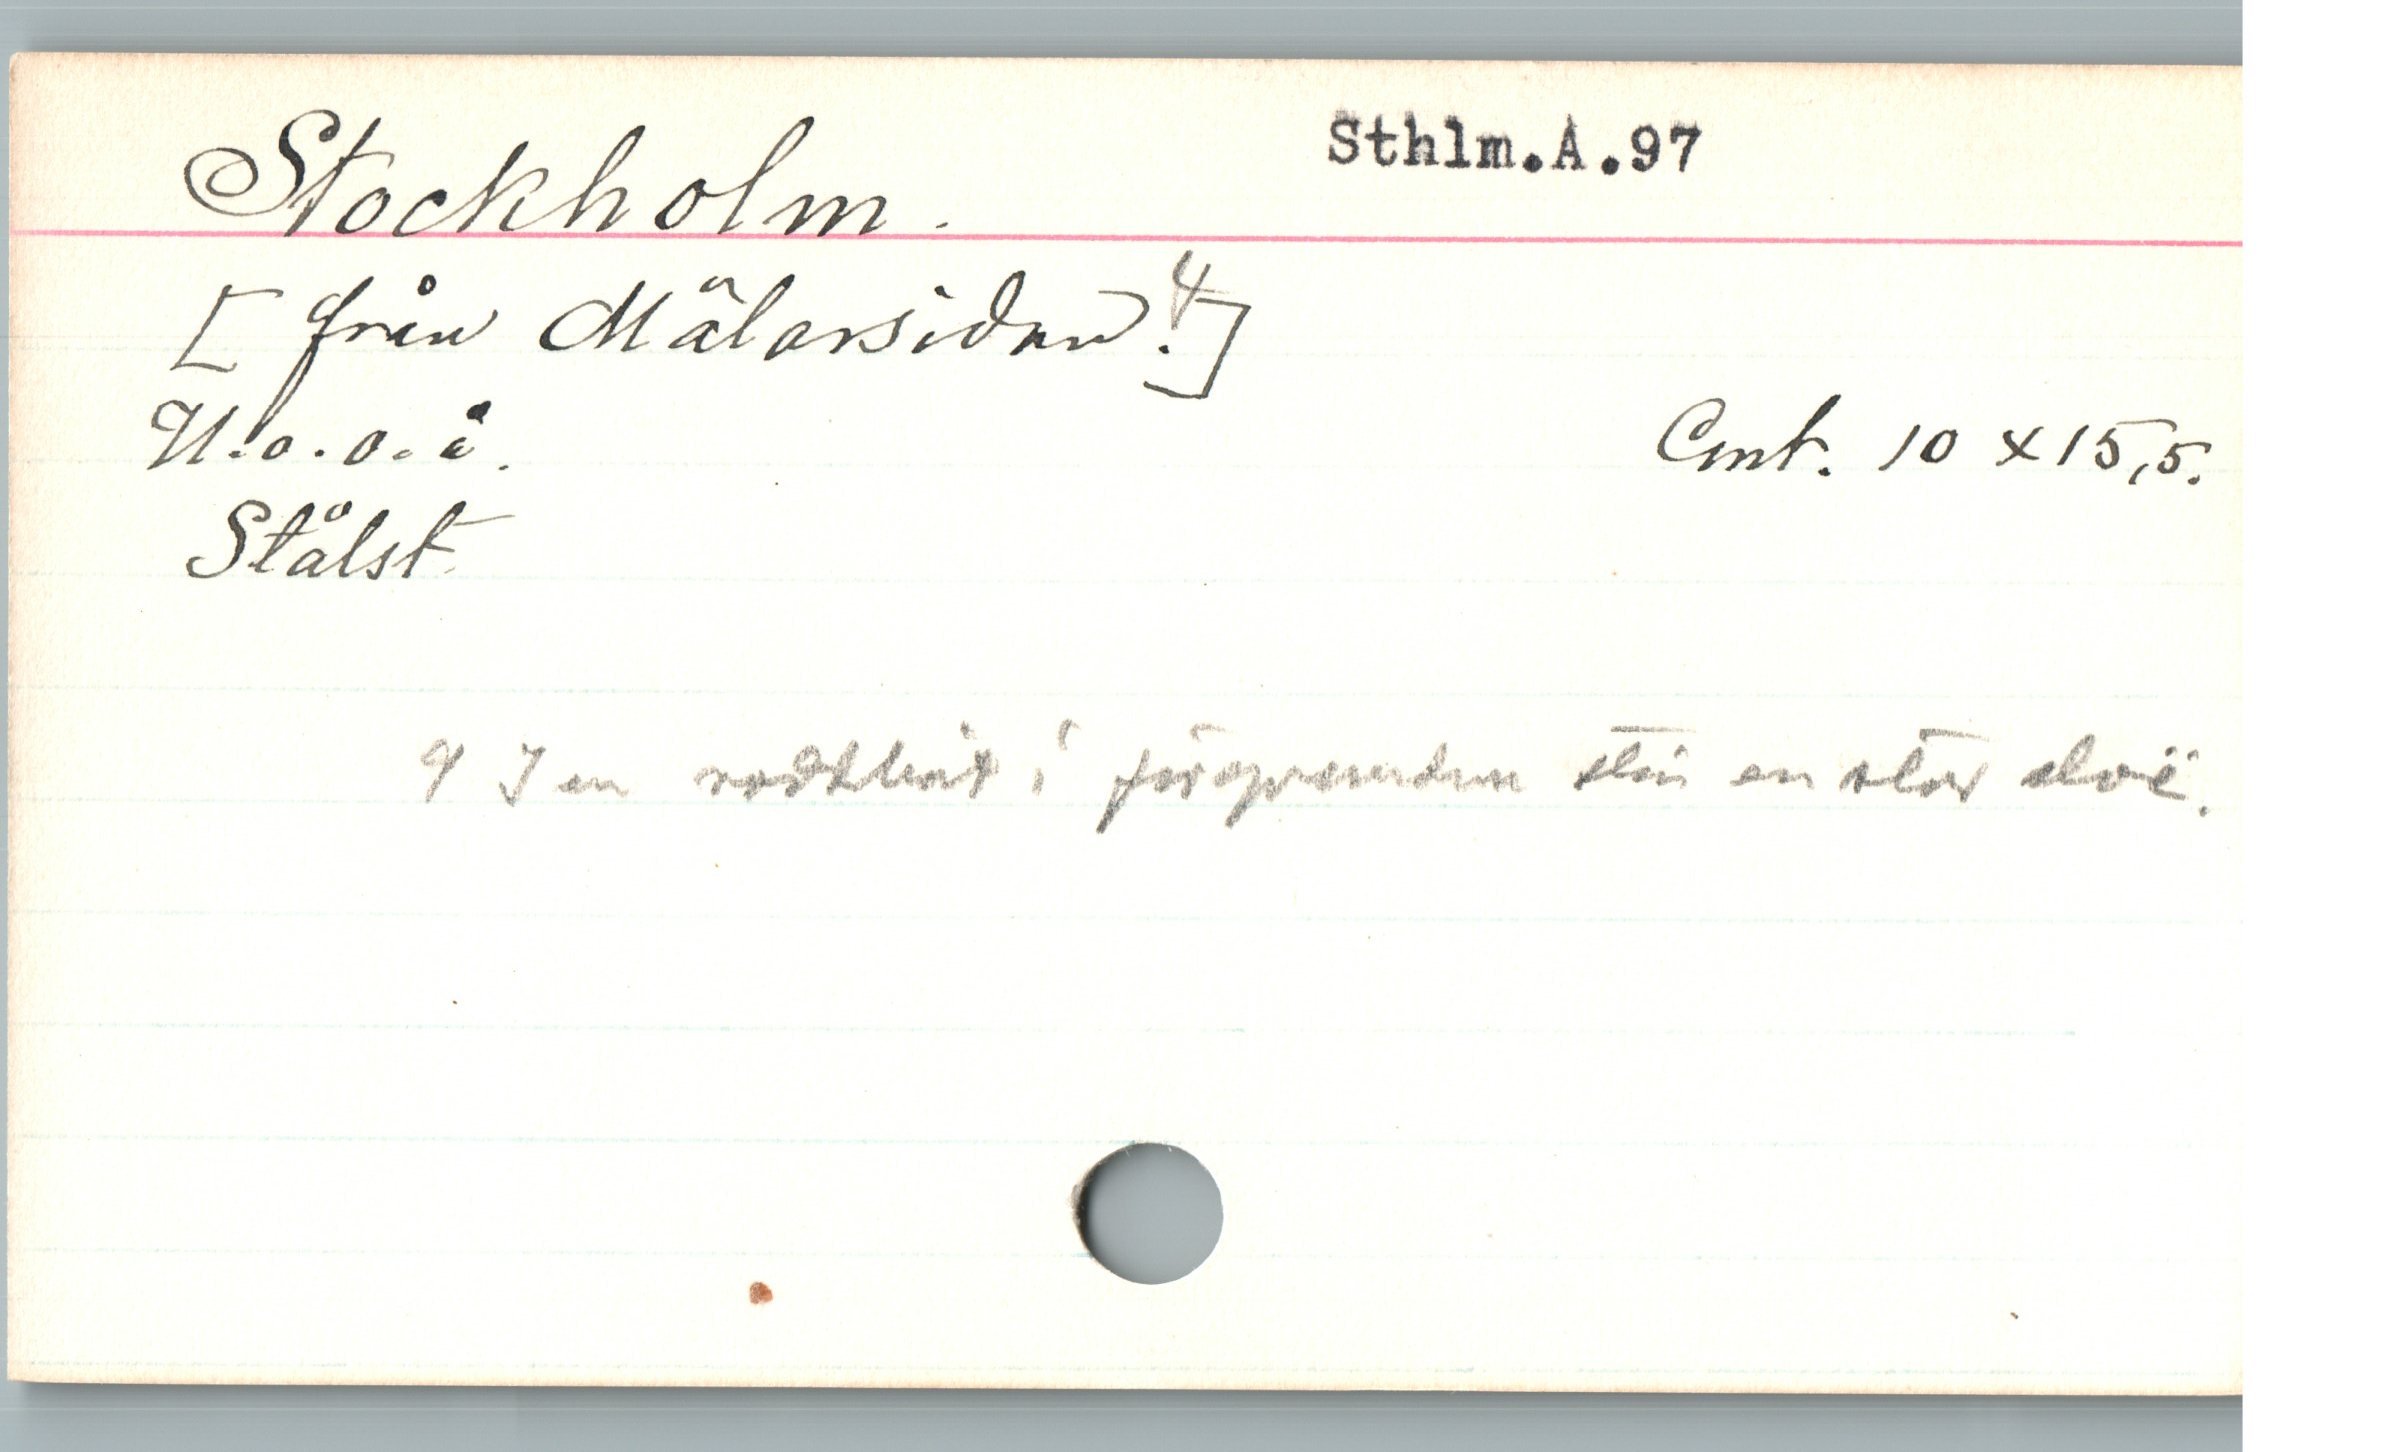 Stockholm.
Sthlm.A.97
[från Mälarsiden.4]
U.o.o.å.
Cmt. 10 x 15,5.
Stålst.
4 I en i förgrunden står en stor